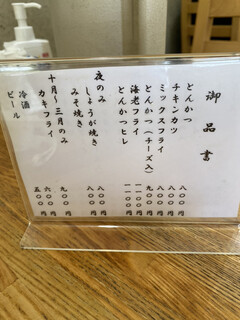 御品書
とんかつ 八〇〇円
チキンカツ 八〇〇円
ミックスフライ 八〇〇円
とんかつ(チーズ入) 九〇〇円
海老フライ 一一〇〇円
とんかつヒレ 一一〇〇円
夜のみ
しょうが焼き 八〇〇円
みそ焼き 八〇〇円
十月〜三月のみ
カキフライ 九〇〇円
冷酒 六〇〇円
ビール 五〇〇円